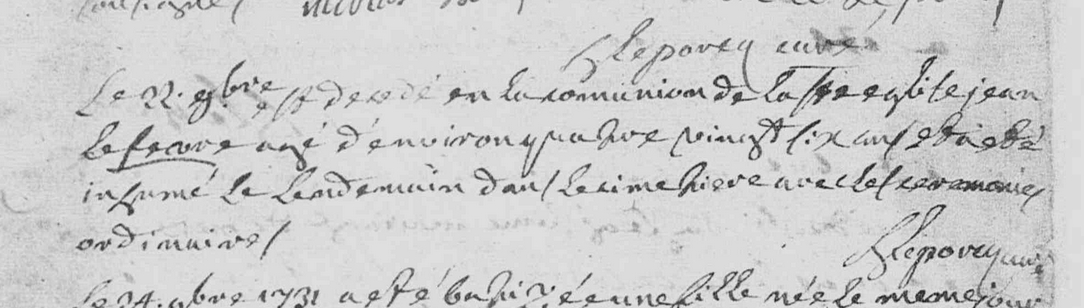 Leporcq curé
Le 22. 9bre est decedé en la comunion de la Ste eglise jean
lefevre agé d'environ quatre vingt six ans et a eté
inhumé le lendemain dans le cimetiere avec les ceremonies
ordinaires
Leporcq curé
Le 24. 9bre 1731 a eté batizée une fille née le meme jour